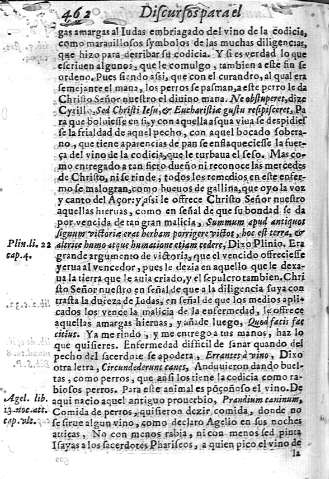 462 Discursos para el
gas amargas al Iudas embriagado del vino de la codicia,
como marauillosos symbolos de las muchas diligencias,
que hizo para derribar su codicia. Y si es verdad lo que
escriuen algunos, que le comulgo, tambien a este fin se
ordeno. Pues siendo assi, que con el curandro, al qual era
semejante el mana, los perros se pasman, a este perro le da
Christo Señor nuestro el diuino mana. Ne obstuperet, dize
Cyrillo, Sed Christi Iesu, & Eucharistiæ gustu resipisceret. Pa
ra que boluiesse en sy, y con aquella asqua viua de despidies
se la frialdad de aquel pecho, con aquel bocado sobera-
no, que tiene apariencias de pan se enflaqueciesse la fuer-
ça del vino de la codicia, que le turbaua el seso. Mas co-
mo entregado a tan fiero dueño ni reconoce las mercedes
de Christo, ni se rinde, todos los remedios en este enfer-
mo se malogran, como hueuos de gallina, que oyo la voz
y canto del Açor: y assi le ofrece Christo Señor nuestro
aquellas hieruas, como en señal de que su bondad se da
por vencida de tan gran malicia, Summum apud antiquos
signum victoriæ eras herbam porrigere victos, hoc est terra, &
Plin. li. 22 altrice humo atque humatione etiam cedere, Dixo Plinio. Era
cap. 4. grande argumento de victoria, que el vencido ofreciesse
yerua al vencedor, pues le dezia en aquello que le dexa-
ua la tierra que le auia criado, y el sepulcro tambien. Chri
sto Señor nuestro en señal de que a la diligencia suya con
trasta la dureza de Iudas, en señal de que los medios apli-
cados los vence la malicia de la enfermedad, le ofrece
aquellas amargas hieruas, y añade luego, Quod facis fac
citius. Ya me rindo, y me entrego a tus manos, haz lo
que quisieres. Enfermedad dificil de sanar quando del
pecho del sacerdote se apodera, Errantes à vino, Dixo
otra letra, Circundederunt canes, Anduuieron dando buel-
tas, como perros, que assi los tiene la codicia como ra-
biosos perros. Para este animal es pōçoñoso el vino. De
Agel. lib. aqui nacio aquel antiguo prouerbio, Prandium caninum,
13. noc. att. Comida de perros, quisieron dezir comida, donde no
cap. vlt. se sirue algun vino, como declaro Agelio en sus noches
atticas. No con menos rabia, ni con menos sed pinta
Isayas a los sacerdotes Phariseos, a quien pico el vino de
la